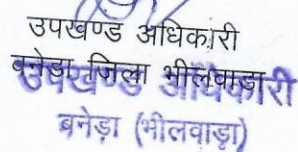 उपखण्ड अधिकारी
बनेडा जिला भीलवाडा
उपखण्ड अधिकारी
बनेड़ा (भीलवाड़ा)